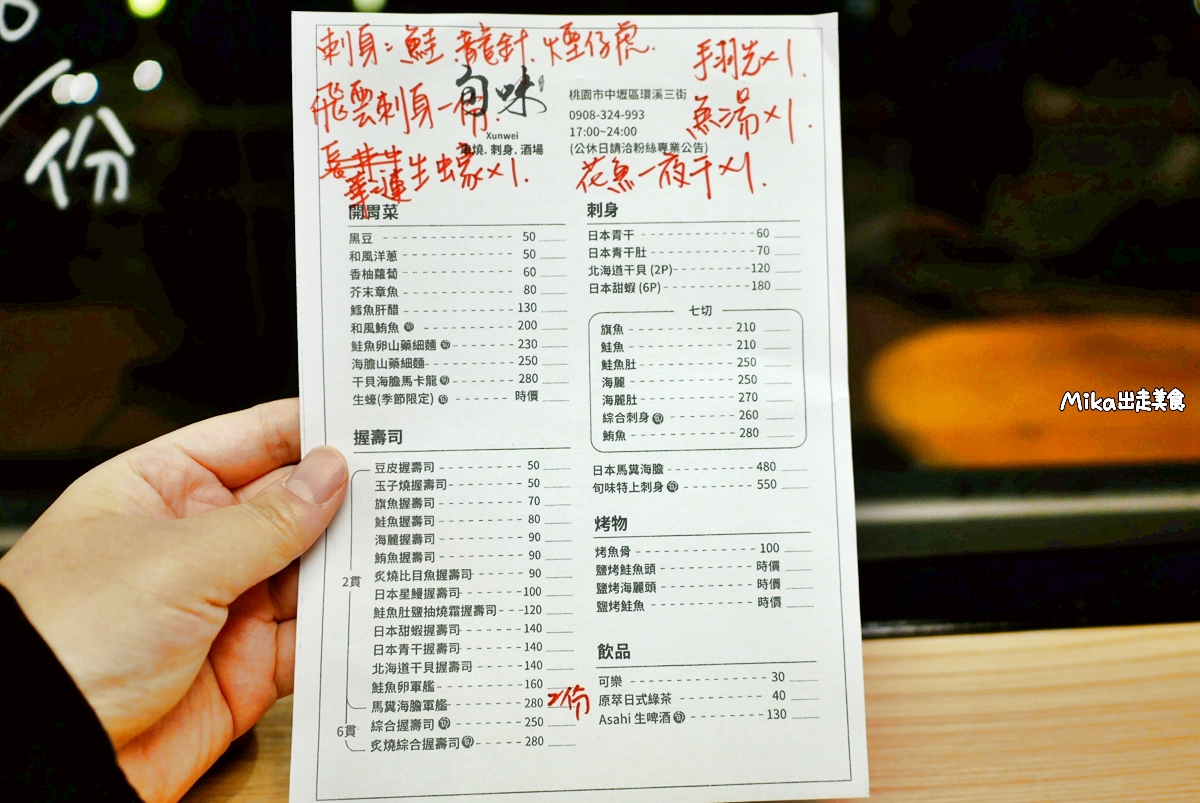 份
刺身：鮭.龍針.煙仔虎.
飛雲刺身一份.
生蠔×1.
手羽先×1.
魚湯×1.
花魚一夜干×1.
旬味
Xunwei
串燒.刺身.酒場
桃園市中壢區環溪三街
0908-324-993
17:00~24:00
(公休日請洽粉絲專業公告)
開胃菜
黑豆 50
和風洋蔥 50
香柚蘿蔔 60
芥末章魚 80
鱈魚肝醋 130
和風鮪魚 旬 200
鮭魚卵山藥細麵 旬 230
海膽山藥細麵 250
干貝海膽馬卡龍 旬 280
生蠔(季節限定) 旬 時價
握壽司
2貫
豆皮握壽司 50
玉子燒握壽司 50
旗魚握壽司 70
鮭魚握壽司 80
海麗握壽司 90
鮪魚握壽司 90
炙燒比目魚握壽司 90
日本星鰻握壽司 100
鮭魚肚鹽抽燒霜握壽司 120
日本甜蝦握壽司 140
日本青干握壽司 140
北海道干貝握壽司 140
鮭魚卵軍艦 160
馬糞海膽軍艦 280 2份
6貫
綜合握壽司 旬 250
炙燒綜合握壽司 旬 280
刺身
日本青干 60
日本青干肚 70
北海道干貝 (2P) 120
日本甜蝦 (6P) 180
七切
旗魚 210
鮭魚 210
鮭魚肚 250
海麗 250
海麗肚 270
綜合刺身 旬 260
鮪魚 280
日本馬糞海膽 480
旬味特上刺身 旬 550
烤物
烤魚骨 100
鹽烤鮭魚頭 時價
鹽烤海麗頭 時價
鹽烤鮭魚 時價
飲品
可樂 30
原萃日式綠茶 40
Asahi 生啤酒 旬 130
Mika出走美食